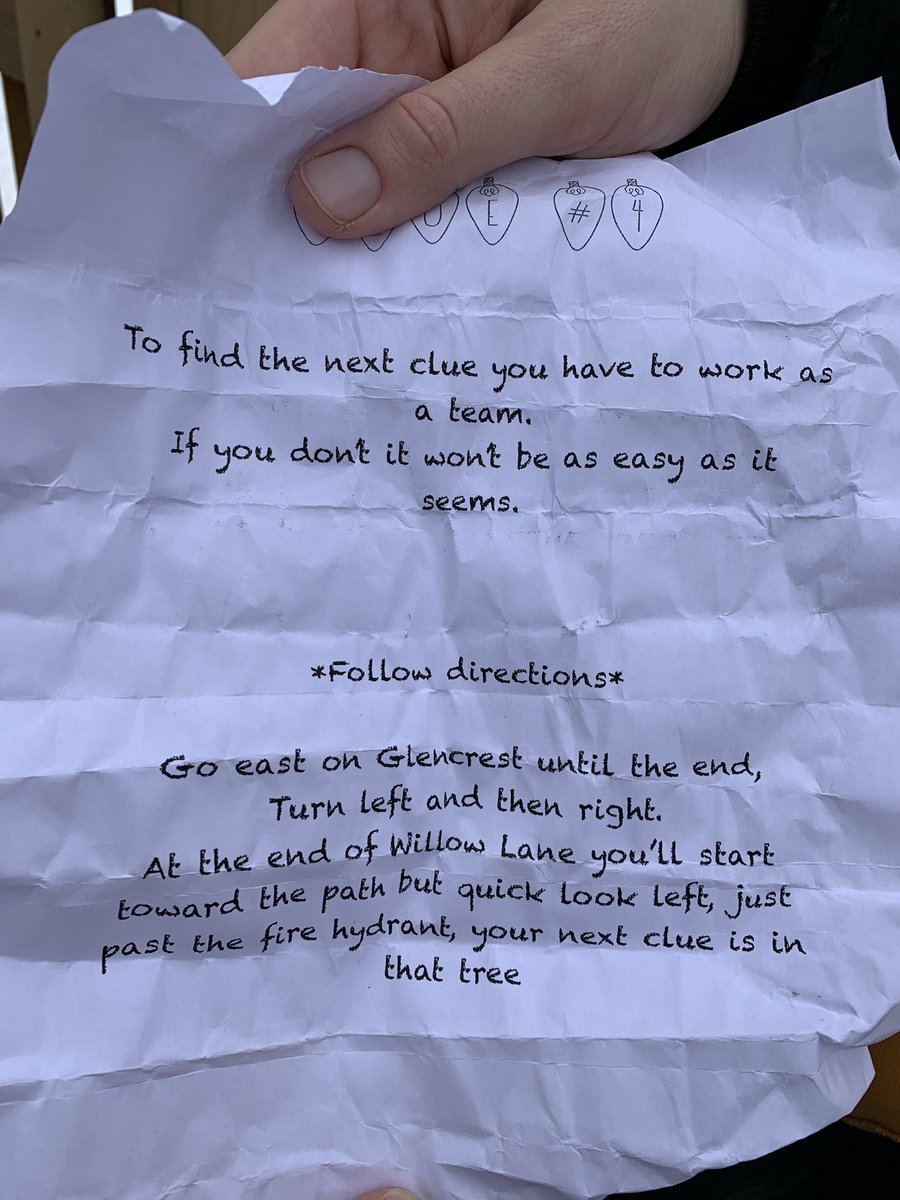 UE #4
To find the next clue you have to work as
a team.
If you don't it won't be as easy as it
seems.
*Follow directions*
Go east on Glencrest until the end,
Turn left and then right.
At the end of Willow Lane you'll start
toward the path but quick look left, just
past the fire hydrant, your next clue is in
that tree